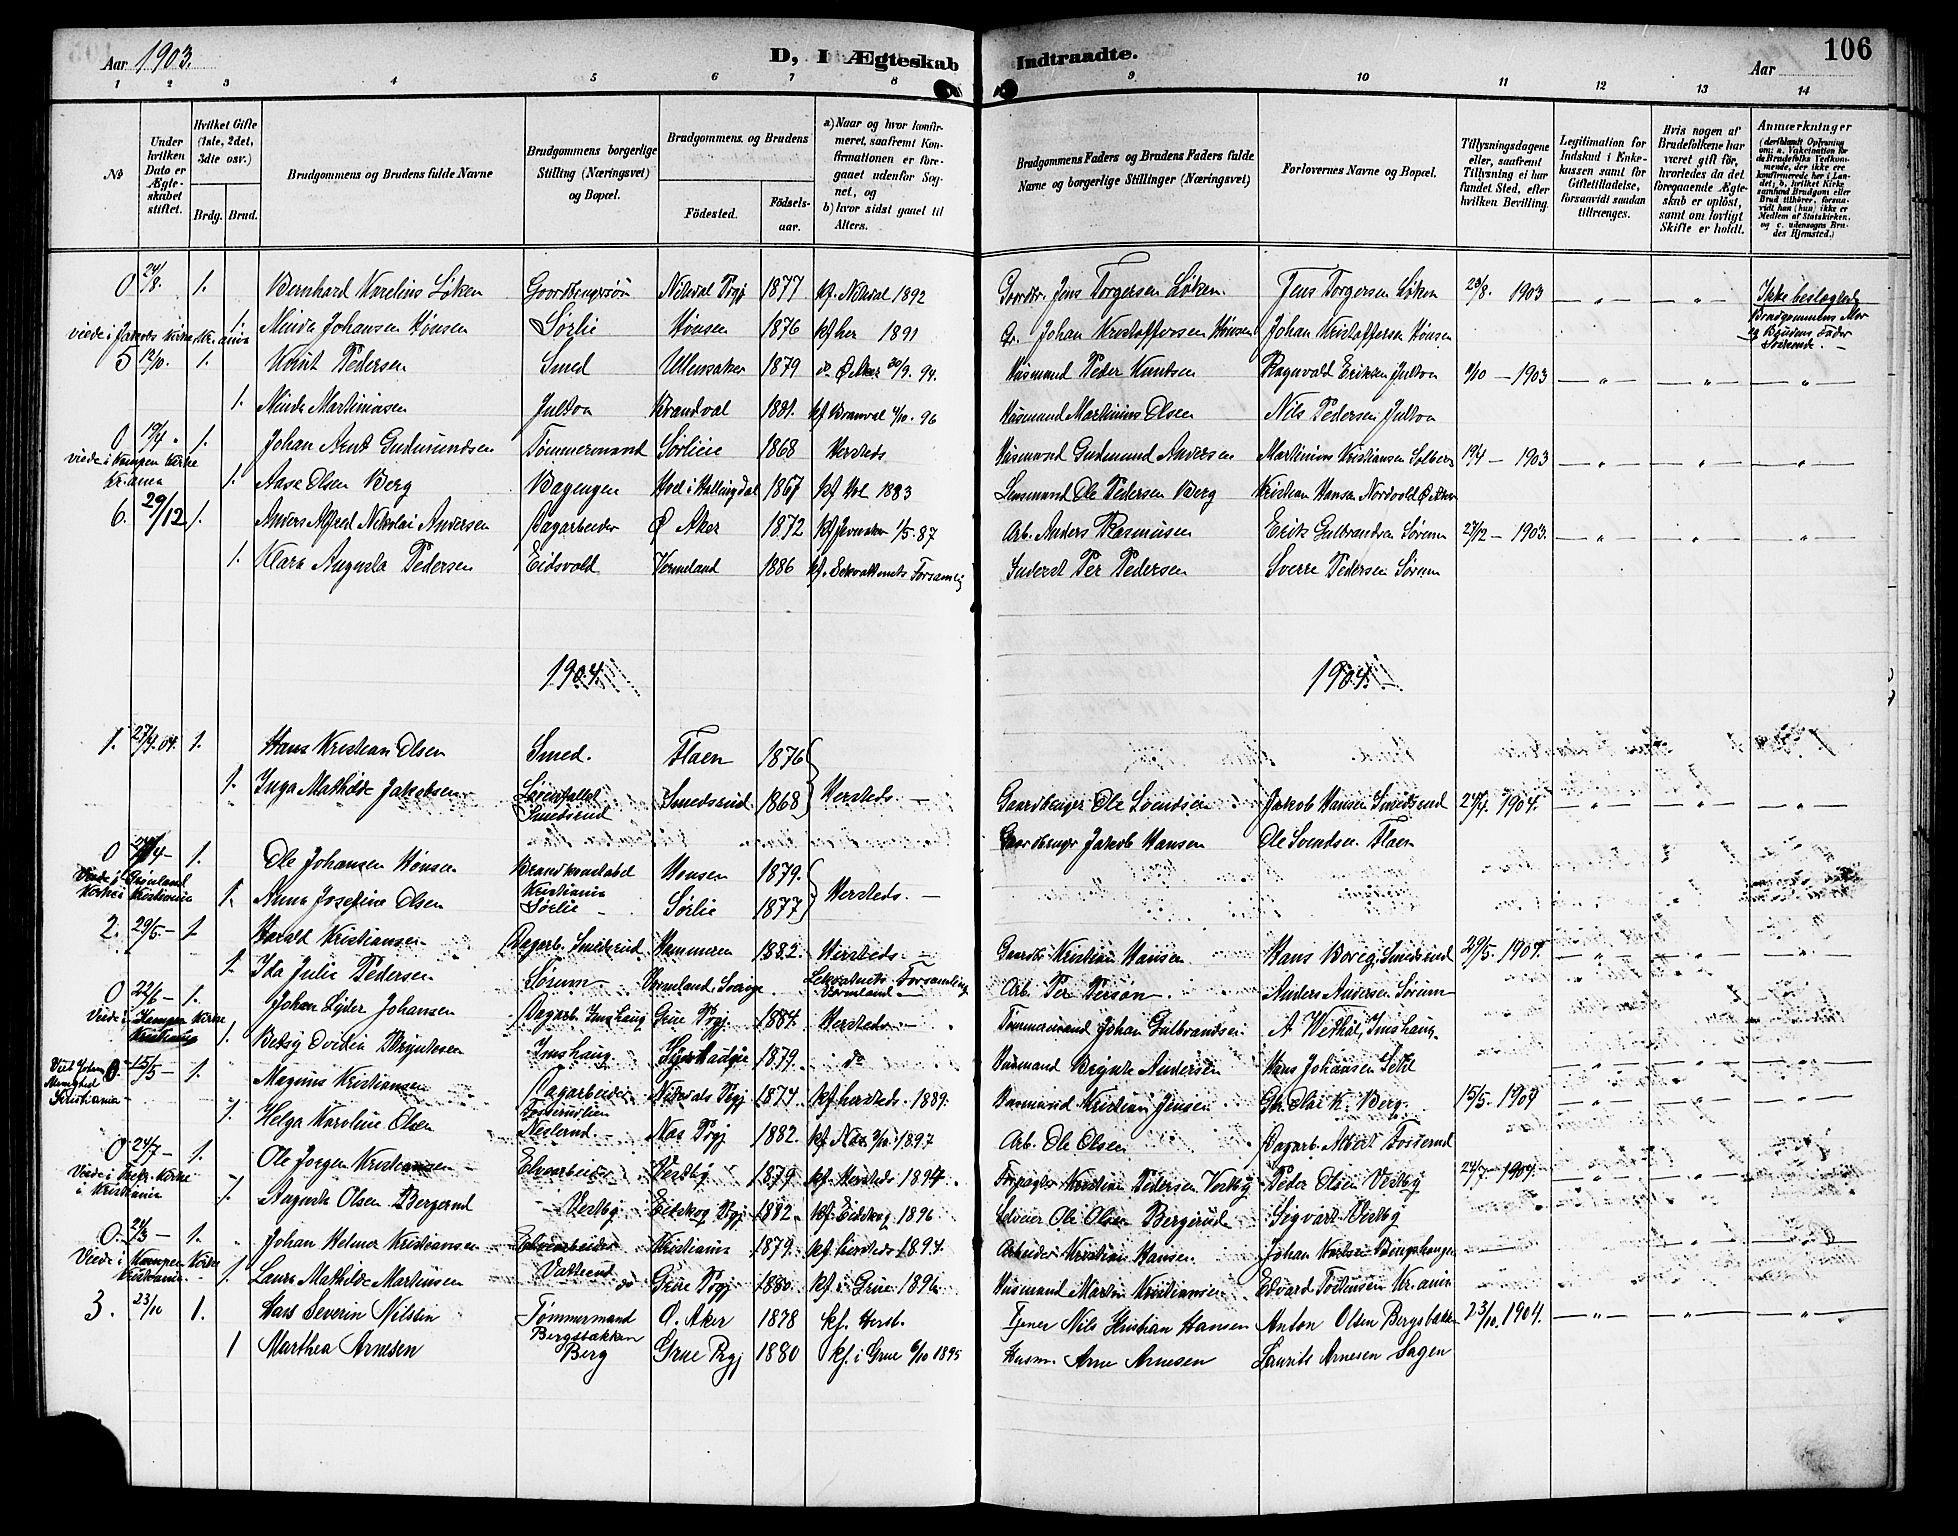 Aar 1903.
D, I Ægteskab Indtraadte.
Aar
106
1 2 3 4 5 6 7 8 9 10 11 12 13 14
No
Under hvilken Dato er Ægteskabet stiftet.
Hvilket Gifte (1ste, 2det, 3die osv.)
Brdg. Brud.
Brudgommens og Brudens fulde Navne
Brudgommens borgerlige Stilling (Næringsvei) og Bopæl.
Brudgommens og Brudens
Fødested.
Fødselsaar.
a) Naar og hvor konfirmeret, saafremt Konfirmationen er foregaaet udenfor Sognet, og
b) hvor sidst gaaet til Alters.
Brudgommens Faders og Brudens Faders fulde Navne og borgerlige Stillinger (Næringsvei)
Forlovernes Navne og Bopæl.
Tillysningsdagene eller, saafremt Tillysning ei har fundet Sted, efter hvilken Bevilling.
Legitimation for Indskud i Enkekassen samt for Giftetilladelse, forsaavidt saadan tiltrænges.
Hvis nogen af Brudefolkene har været gift før, hvorledes da det foregaaende Ægteskab er opløst, samt om lovligt Skifte er holdt.
Anmærkninger (deriblandt Oplysning om: a. Vakcination for de Brudefolks Vedkommende, der ikke ere konfirmerede her i Landet; b. hvilket Kirkesamfund Brudgom eller Brud tilhører, forsaavidt han (hun) ikke er Medlem af Statskirken, og c. udensogns Brudes Hjemsted.)
0 24/8. 1. Bernhard Karelius Løken Gaardbrugersøn Nitedal Prgj 1877 kf. Nitedal 1892 Gaardbr. Jens Torgersen Løken. Jens Torgersen Løken 23/8. 1903 Ikke beslægtede
viede i Jakobs Kirke, Kr.ania 1. Minda Johansen Hønsen Sørlie Hønsen 1876 kf her 1891 Johan Kristoffersen Hønsen Johan Kristoffersen Hønsen Brudgommens Mor og Brudens Fader
5 12/10. 1. Knut Pedersen Smed Ullensaker 1879 Ø Aker 94. Husmand Peder Knutsen Ragnvald Eriksen Julton 11/10 — 1903
1. Minda Martinusen Julton Brandval 1881. kf Branval 4/10. 96 Husmand Martinius Olsen Nils Pedersen Julton
0 19/4. 1. Johan Arnt Gudmundsen Tømmermand Sørlie 1868 Hersteds Husmand Gudmund Andersen Martinius Kristiansen Solberg 19/4 — 1903
viede i Kampen Kirke Kr.ania 1. Aase Olsen Berg Bagengen Hol i Hallingdal 1867 kf Hol 1883 Lensmand Ole Pedersen Berg Kristian Hansen Nordvold Ø Aker
6. 29/12 1. Anders Alfred Nikolai Andersen Dagarbeider Ø Aker 1872 87 Arb. Anders Rasmusen Erik Gulbrandsen Sørum 27/12 — 1903.
1. Klara Augusta Pedersen Eidsvold Vermeland 1886 Per Pedersen Sverre Pedersen Sørum
1904. 1904.
1. 27/4. 04. 1. Hans Kristian Olsen Smed. Flaen 1876
1. Inga Mathilde Jakobsen Smedsrud Smedsrud 1868 Hersteds. Gaardbruger Ole Svendsen Jakob Hansen Smedsrud 24/4. 1904.
Gaardbruger Jakob Hansen Ole Svendsen Flaen
0 1. Ole Johansen Hønsen Brandkonstabel Kristiania Hønsen 1879.
Viede i Grønland Kirke i Kristiania 1. Anna Josefine Olsen Sørlie Sørlie 1877 Hersteds.
2. 29/5. — 1. Harald Kristiansen Dagarb. Smedsrud Hammeren 1882. Hersteds. Gaardbr Kristian Hansen Hans Boreg. Smedsrud 29/5. 1904.
1. Ida Julie Pedersen Sørum Vermland, Sverige Forsamling Vermland Arb. Per Person Anders Andersen Sørum
0 22/6 — 1. Johan Lyder Johansen Dagarb. Imshaug Grue Prgj. 1884. Hersteds Tømmermand Johan Gulbrandsen A Wethal, Imshaug
Viede i Kampen Kirke Kristiania 1. Betsy Ovidia Bryntesen Imshaug 1879. do Husmand Brynte Andersen Hans Johansen
Viet Kristiania 0 15/5 — 1. Magnus Kristiansen Dagarbeider Nitedals Prgj 1874 kf hersteds. 1889. Husmand Kristian Jensen Berg 15/5. 1904
1. Helga Karoline Olsen Neslund Næs Prgj 1882. kf Næs 1897 Arb. Ole Olsen Dagarb.
0 24/7 — 1. Ole Jørgen Kristiansen Elvearbeider Vestby 1879 kf. Hersteds 1894. Kristian Pedersen Vestby Peder Olsen Vestby 24/7 — 1904.
Viede i Kirke i Kristiania 1. Augusta Olsen Bergerud Vestby Eidskog Prgj 1882. kf. Eidskog 1896 Ole Olsen Bergerud Sigvart Vestby
0. 1. Johan Helmer Kristiansen Elvearbeider Kristiania 1879. kf. hersteds 1894. Arbeider Kristian Hansen Johan Karlsen
Viede i Kampen Kirke Kristiania 1. Laura Mathilde Martinsen do Grue Prgj 1880. kf. i Grue 1896 Husmand Martin Kristiansen Edvard Torstensen Kr.ania
3. 23/10 1. Hans Severin Nilssen Tømmermand Bergsbakken Ø. Aker 1878 kf. Herst. Nils Kristian Hansen Anton Olsen Bergsbakken 23/10. 1904.
1 Marthea Arnesen Berg Grue Prgj 1880 kf. i Grue 6/10 1895 Husm. Arne Arnesen Laurits Arnesen Sagen